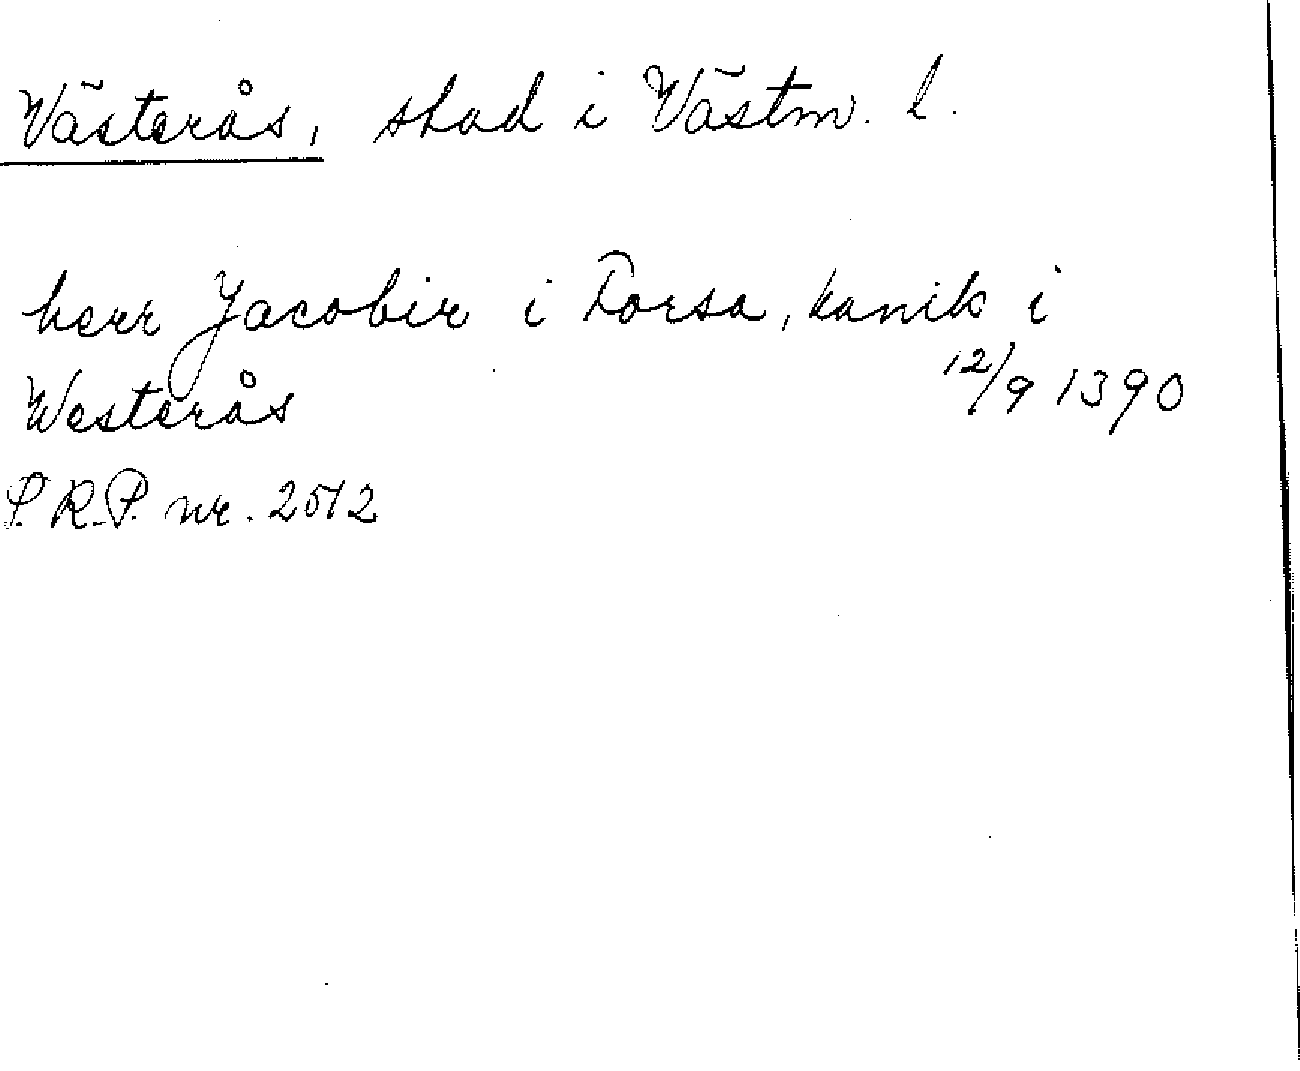 Västerås, stad i Västm. l.
herr Jacobir i Torsa, kanik i
Westerås 12/9 1390
P.R.P. nr. 2512